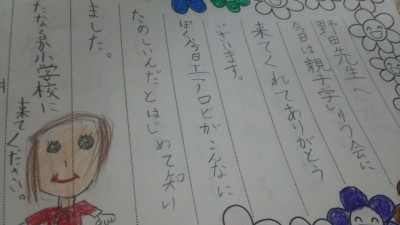 野田先生へ
今日は親子学しゅう会に
来てくれてありがとう
ざいます。
ぼく今日エアロビがこんなに
たのしいんだとはじめて知い
ました。
小学校に
来てください。